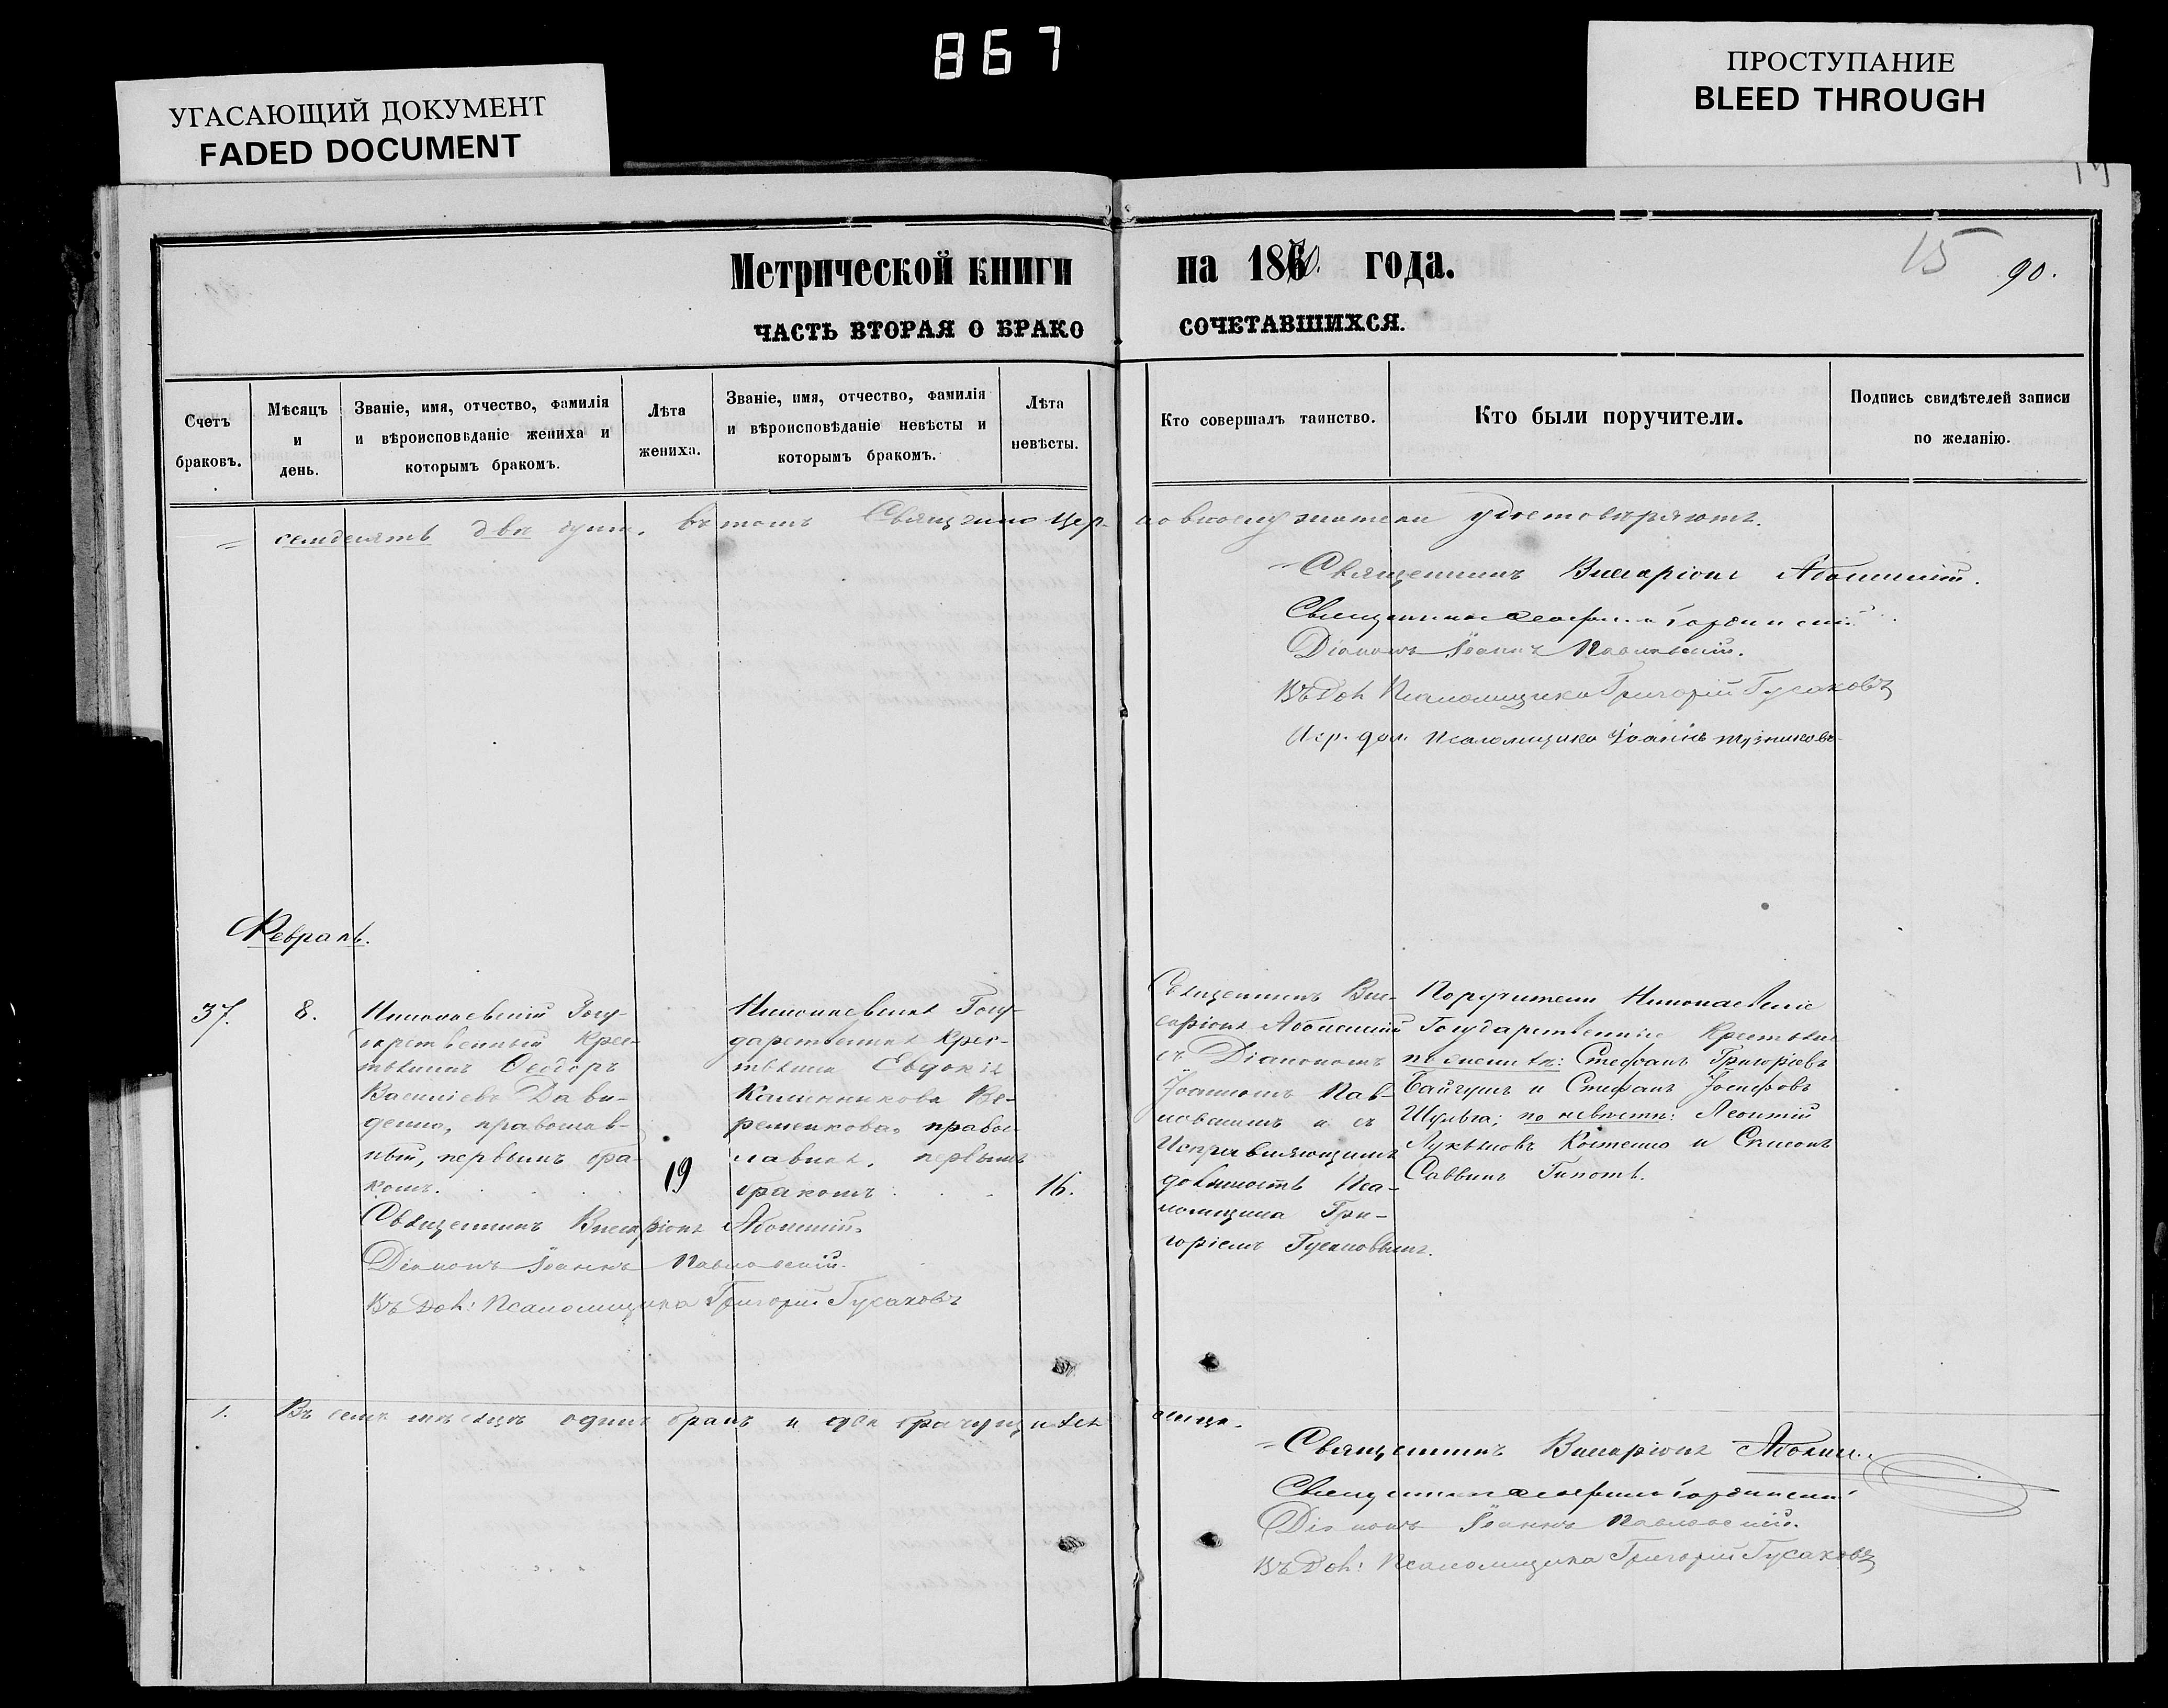 867
УГАСАЮЩИЙ ДОКУМЕНТ
FADED DOCUMENT
ПРОСТУПАНИЕ
BLEED THROUGH
15 90.
Метрической книги на 1870. года.
ЧАСТЬ ВТОРАЯ О БРАКОСОЧЕТАВШИХСЯ.
Счетъ браковъ.
Мѣсяцъ и день.
Званіе, имя, отчество, фамилія и вѣроисповѣданіе жениха и которымъ бракомъ.
Лѣта жениха.
Званіе, имя, отчество, фамилія и вѣроисповѣданіе невѣсты и которымъ бракомъ.
Лѣта невѣсты.
Кто совершалъ таинство.
Кто были поручители.
Подпись свидѣтелей записи по желанію.
семдесятъ двѣ души. въ томъ Священно цер-
удостовѣряютъ.
Священникъ Виссаріонъ
Священникъ
Діаконъ Іоаннъ Павловскій.
Въ дол. Псаломщика Григорій Гусаковъ
Испр. дол. Псаломщика Іоаннъ
Февраль.
37.
8.
Николаевскій Госу-
дарственный Крес-
тьянинъ Ѳеодоръ
Василіевъ Дави-
денко, православ-
ный, первымъ бра-
комъ.
19
Николаевская Госу-
дарственная Крес-
тьянка Евдокія
Калинникова Ве-
ременкова, правос-
лавная, первымъ
бракомъ
16.
Священникъ Вис-
саріонъ
съ Діакономъ
Іоанномъ Пав-
ловскимъ и съ
Исправляющимъ
должность Пса-
ломщика Гри-
горіемъ Гусаковымъ.
Поручители Николаевскіе
Государственные Крестьяне
по женихѣ: Стефанъ Григоріевъ
Байгушъ и Стефанъ Іосифовъ
Шульга; по невѣстѣ: Леонтій
Лукьяновъ Костенко и Симеонъ
Саввинъ
Священникъ Виссаріонъ
Діаконъ Іоаннъ Павловскій.
Въ дол: Псаломщика Григорій Гусаковъ
1.
Въ семъ мѣсяцѣ одинъ бракъ и два брачущихся
лица.
Священникъ Виссаріонъ
Священникъ
Діаконъ Іоаннъ Павловскій.
Въ дол: Псаломщика Григорій Гусаковъ